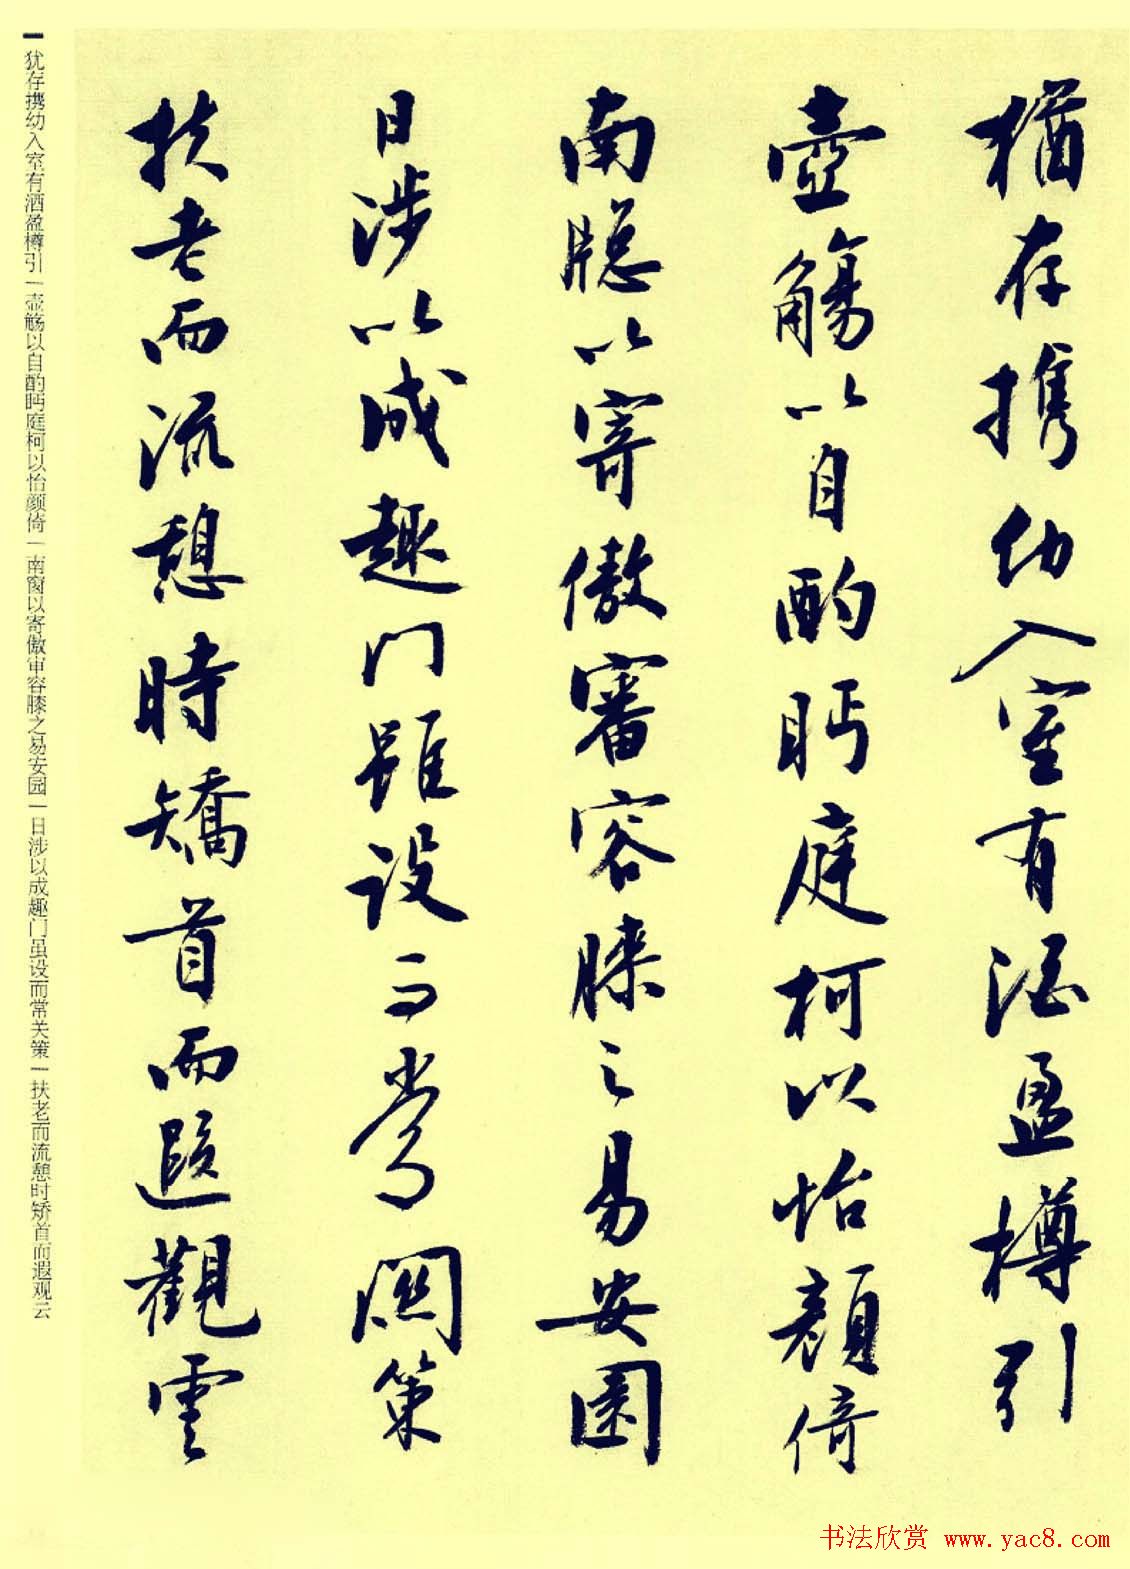 猶存携幼入室有酒盈樽引
壺觴以自酌眄庭柯以怡顏倚
南牕以寄傲審容膝之易安園
日涉以成趣門雖設而常關策
扶老而流憩時矯首而遐觀雲
犹存携幼入室有酒盈樽引｜壶觞以自酌眄庭柯以怡颜倚｜南窗以寄傲审容膝之易安园｜日涉以成趣门虽设而常关策｜扶老而流憩时矫首而遐观云
书法欣赏 www.yac8.com